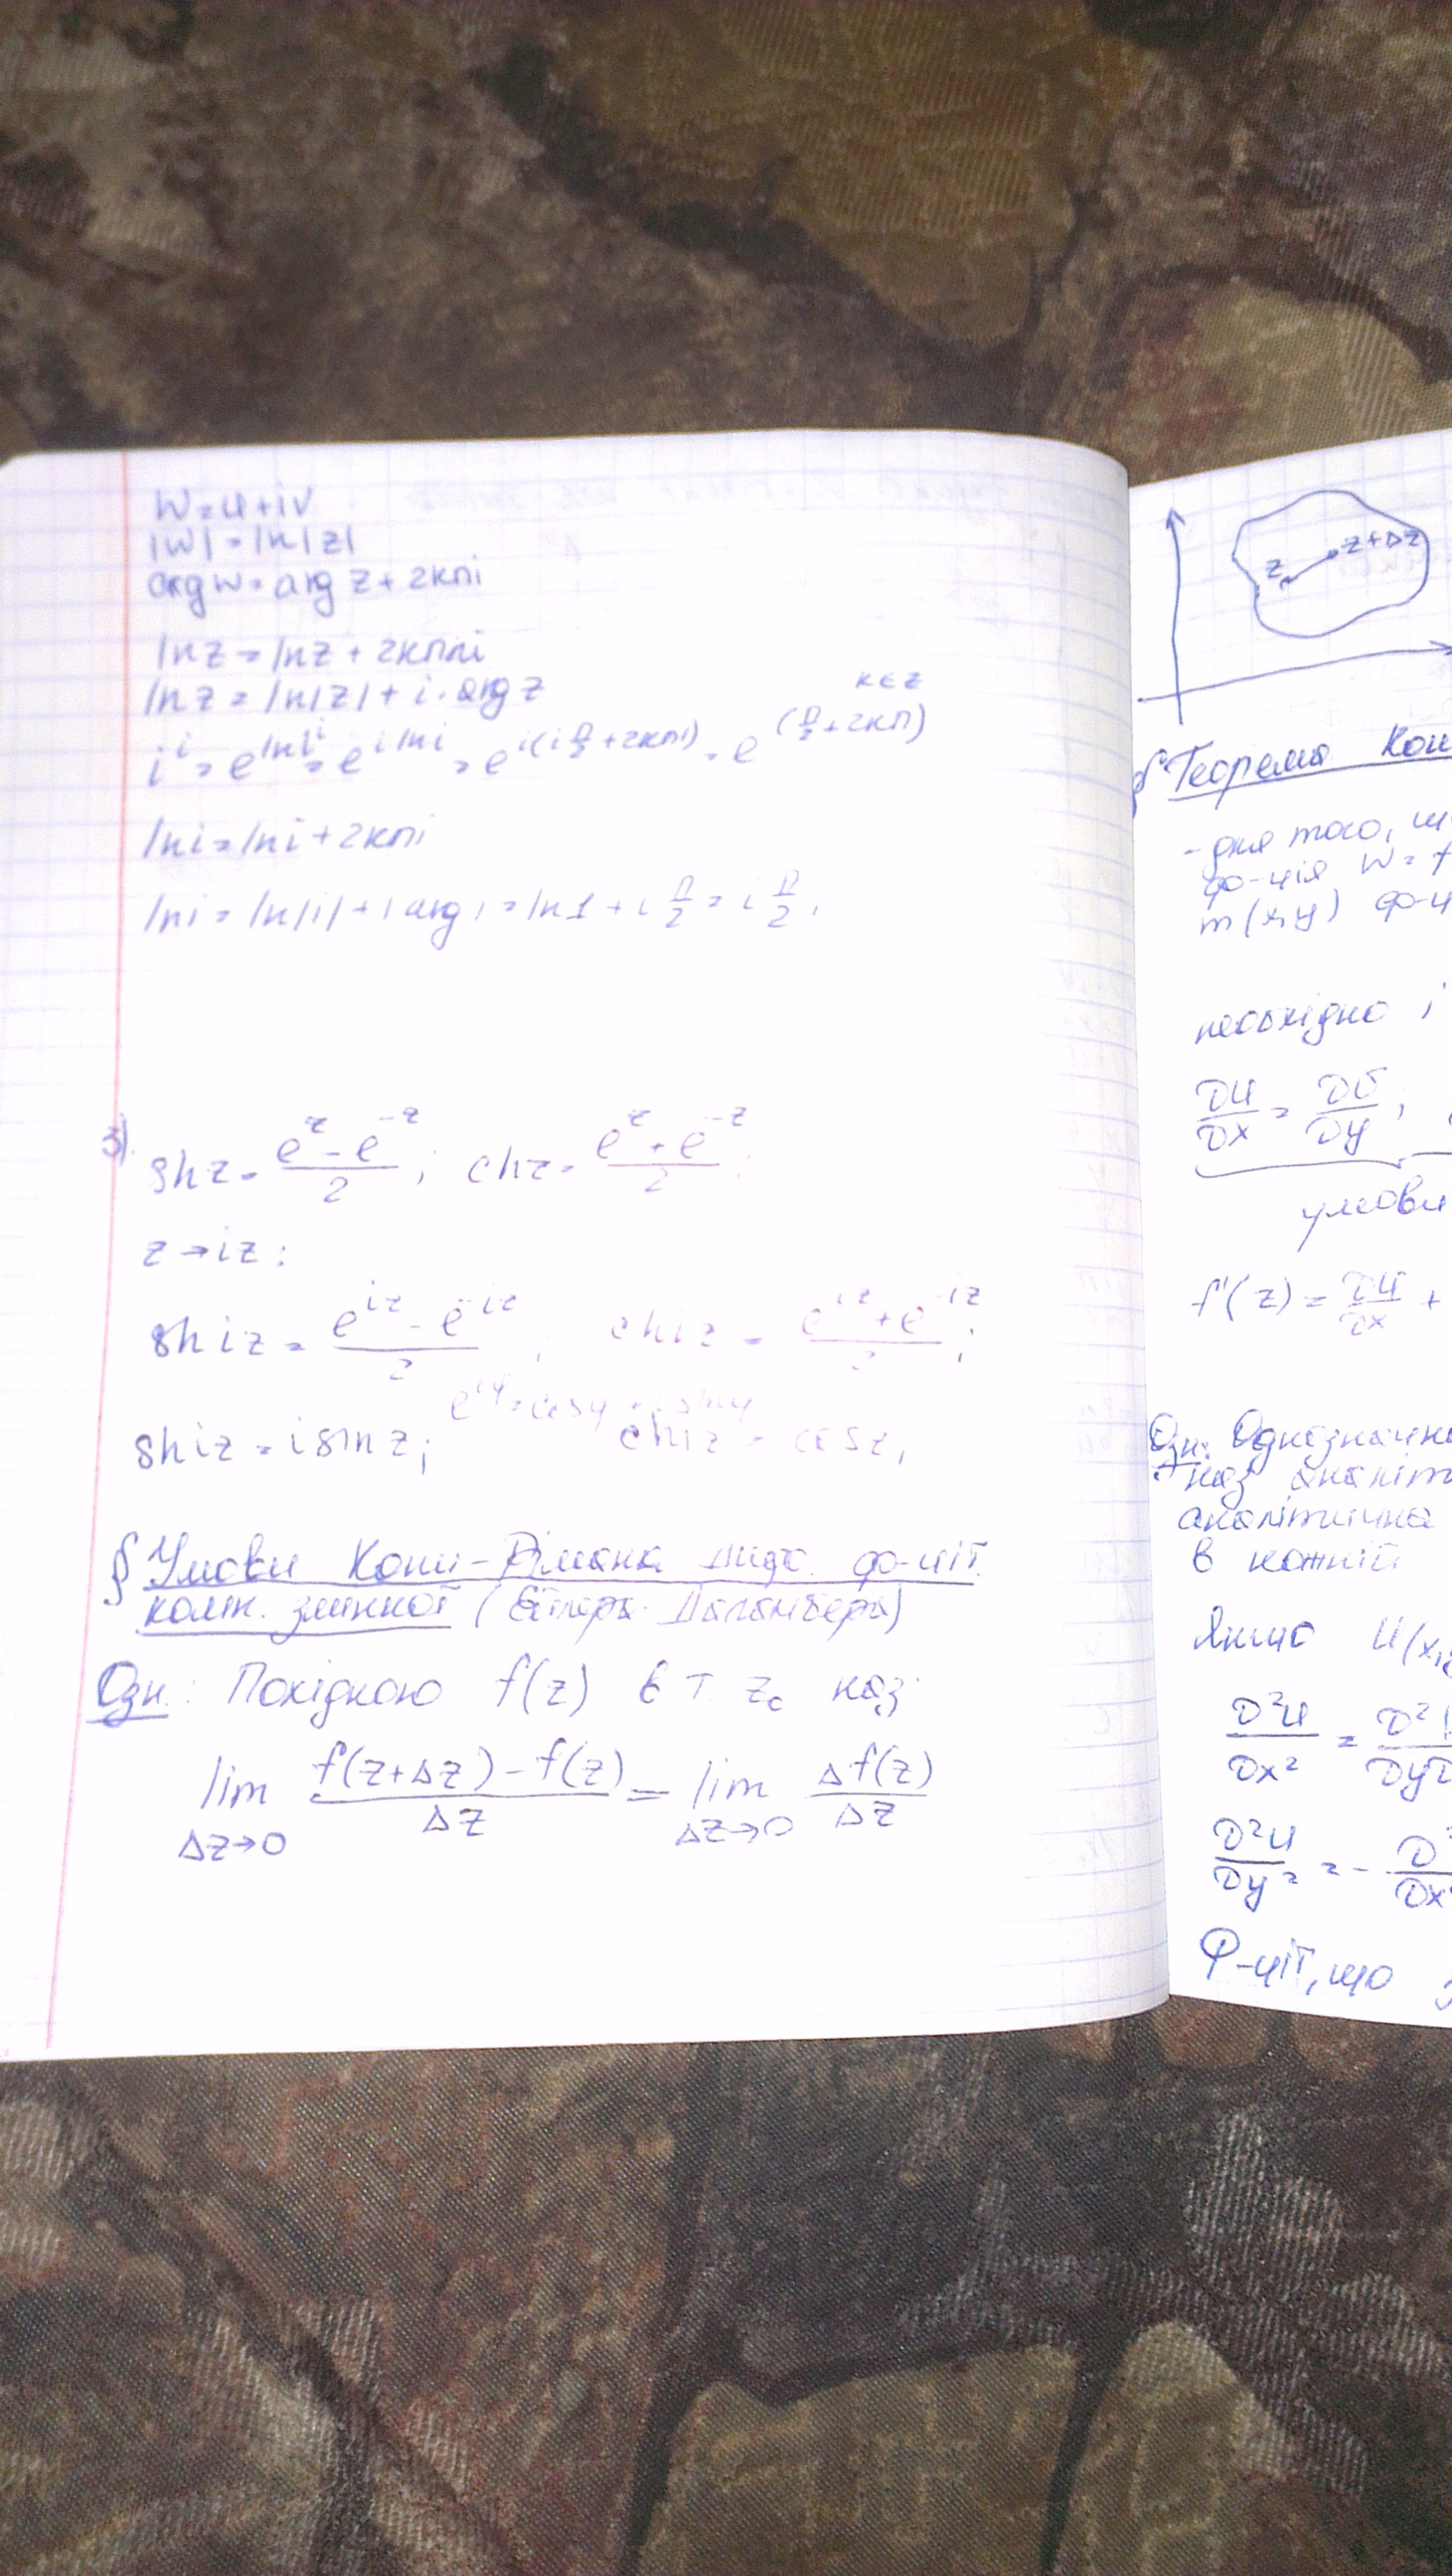 W = u + iv
|W| = ln|z|
arg w = arg z + 2kπi
ln z = ln z + 2kπi
ln z = ln|z| + i · arg z
k ∈ z
i^i = e^(ln i^i) = e^(i ln i) = e^(i(i π/2 + 2kπi)) = e^(π/2 + 2kπ)
ln i = ln i + 2kπi
ln i = ln|i| + i arg i = ln 1 + i π/2 = i π/2,
3).
sh z = (e^z - e^(-z))/2 ; ch z = (e^z + e^(-z))/2 ;
z → iz :
sh iz = (e^(iz) - e^(-iz))/2 ; ch iz = (e^(iz) + e^(-iz))/2 ;
sh iz = i sin z; ch iz = cos z,
§ Умови Коші-Рімана ф-ції
комп. змінної (Ейлера-Даламбера)
Озн.: Похідною f(z) в т. z₀ наз.
lim Δz→0 (f(z+Δz) - f(z))/Δz = lim Δz→0 Δf(z)/Δz
z z+Δz
§ Теорема
- для того,
ф-ція W =
т (x, y)
необхідно і
∂u/∂x = ∂v/∂y ;
умови
f'(z) = ∂u/∂x +
Озн: Однозначна
наз
аналітична
в кожній
Якщо
∂²u/∂x² =
∂²u/∂y² = -
Ф-ції, що